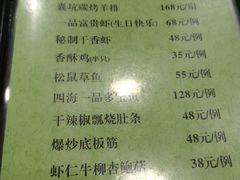 襄坑碳烤羊排 168元/扇
一品富贵虾(生日快乐) 68元/例
秘制干香虾 48元/例
香酥鸡(半只) 35元/例
松鼠草鱼 55元/例
四海一品多宝鱼 128元/例
干辣椒瓢烧肚条 48元/例
爆炒底板筋 48元/例
虾仁牛柳杏鲍菇 38元/例